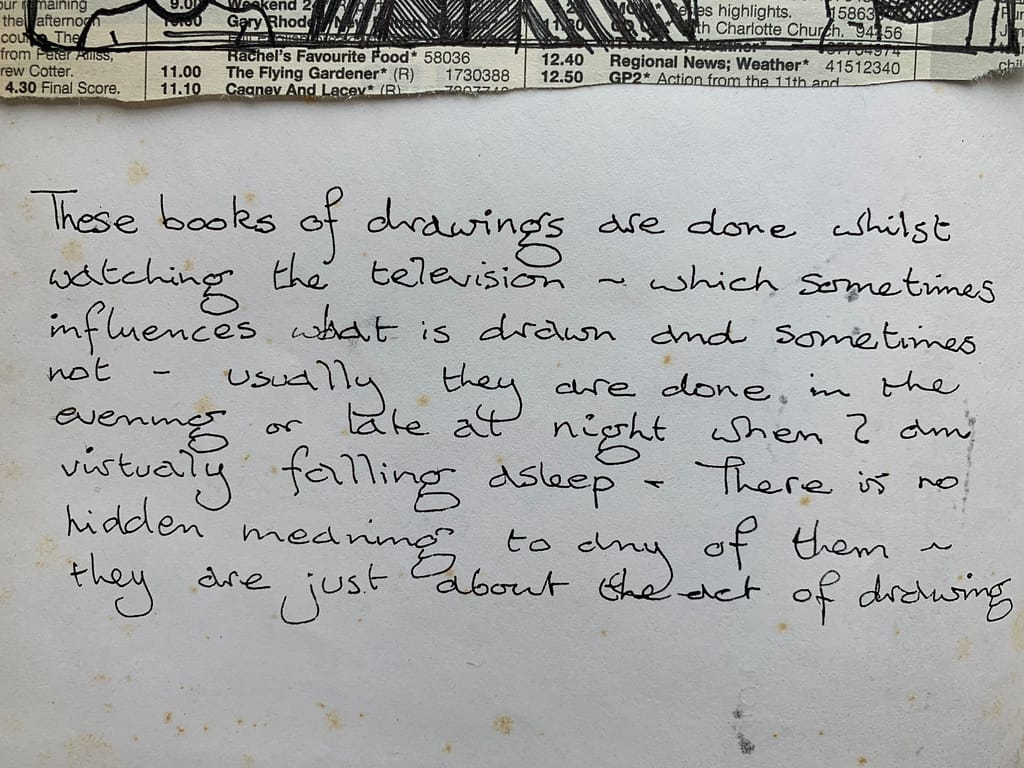 our remaining
the afternoon
court. The
from Peter Alliss,
rew Cotter.
4.30 Final Score.
9.00 Weekend 2
10.00 Gary Rhode
Rachel's Favourite Food* 58036
11.00 The Flying Gardener* (R) 1730388
11.10 Cagney And Lacey* (R)
es highlights. 15863
th Charlotte Church. 94456
12.40 Regional News; Weather* 41512340
12.50 GP2* Action from the 11th and
These books of drawings are done whilst
watching the television ~ which sometimes
influences what is drawn and sometimes
not - usually they are done in the
evening or late at night when I am
virtualy falling asleep - There is no
hidden meaning to any of them ~
they are just about the act of drawing